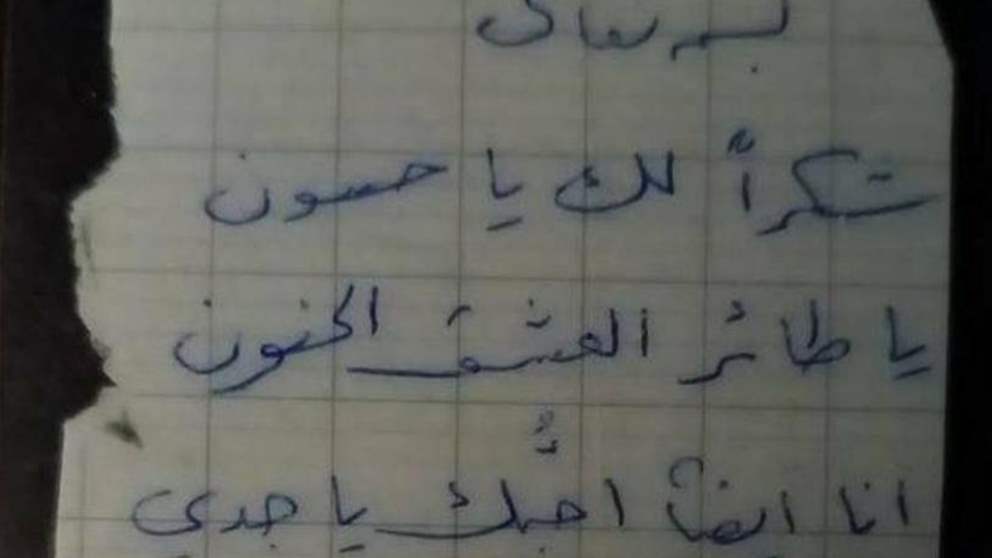 بسمه تعالى
شكراً لك يا حسون
يا طائر العشق الحنون
انا ايضاً احبُّك يا جدي